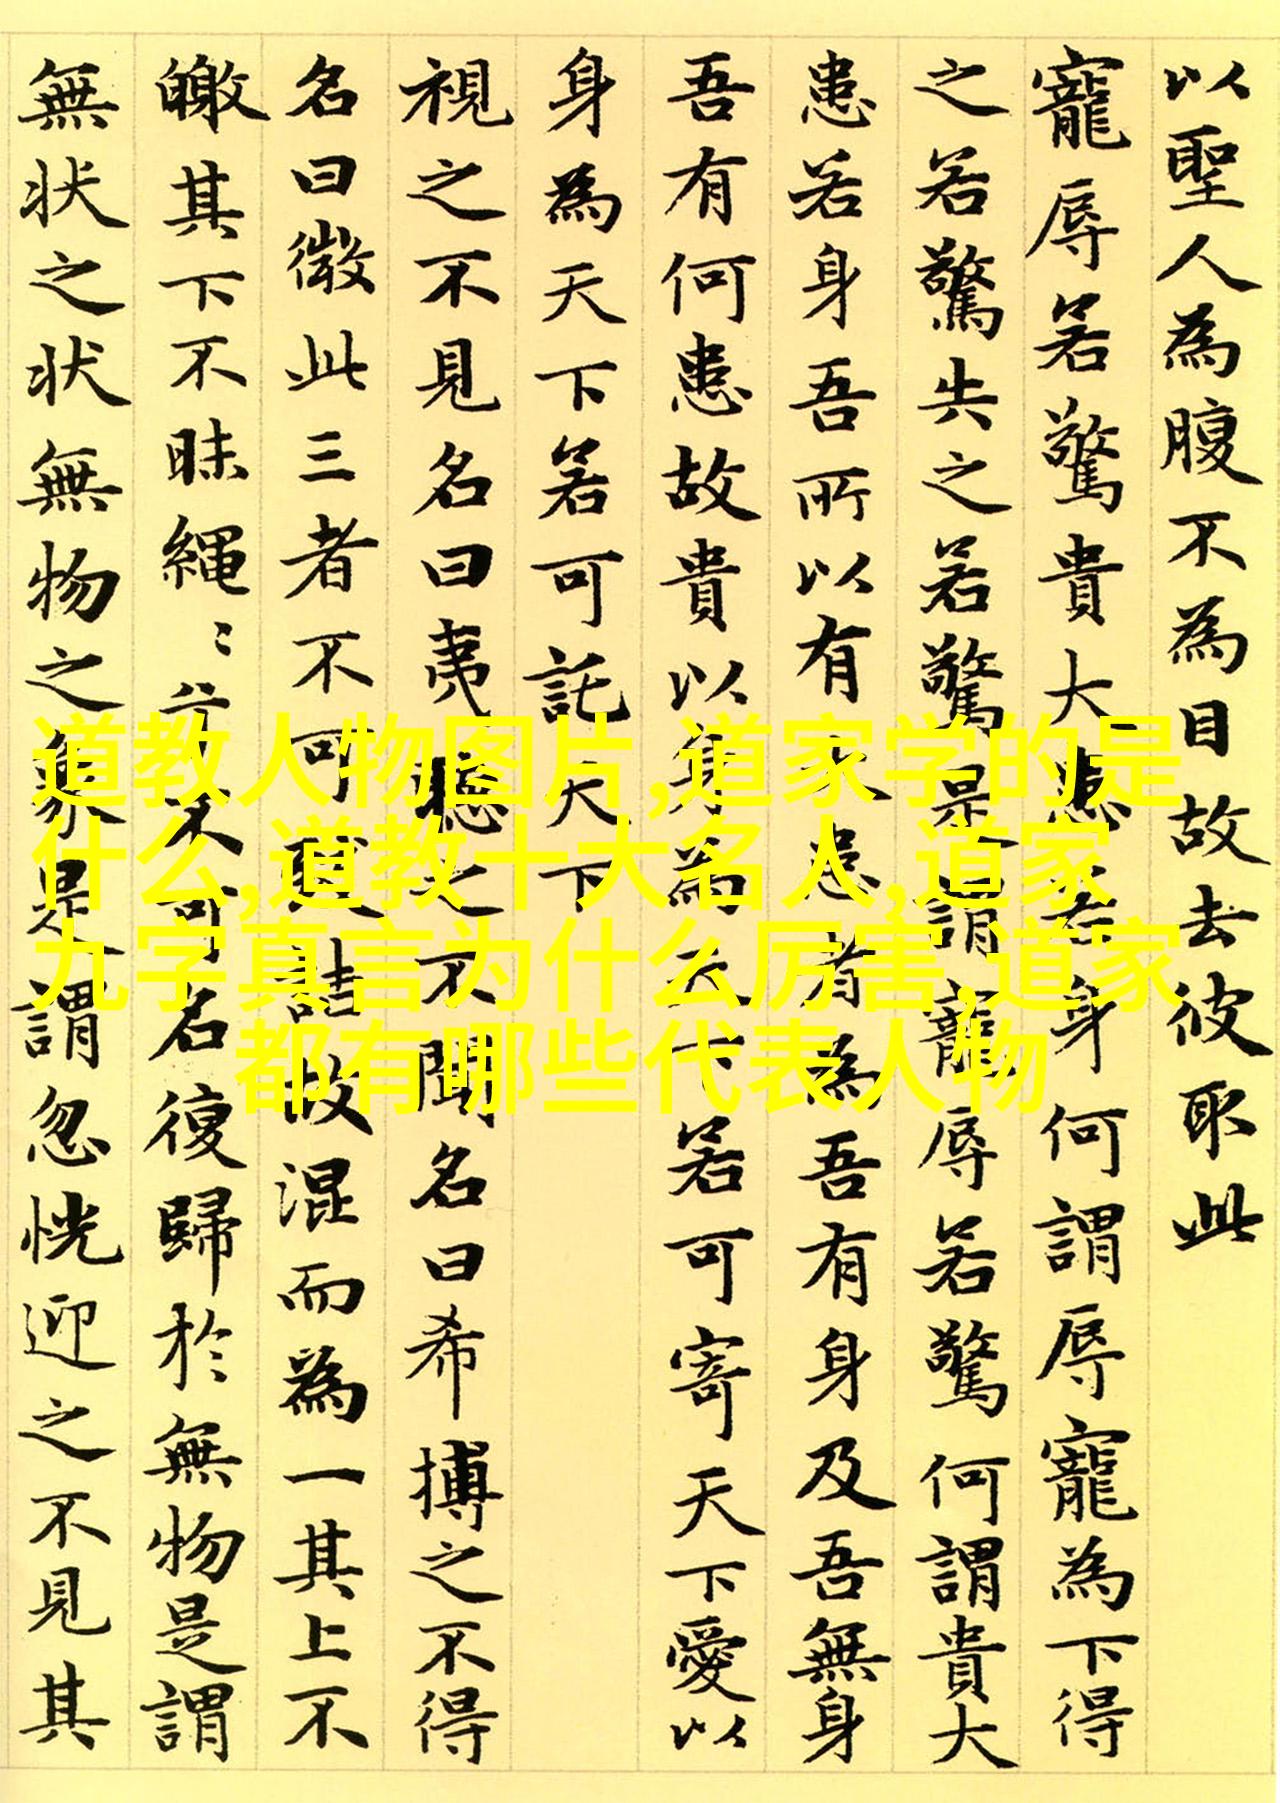 以聖人為腹不為目故去彼取此
寵辱若驚貴大患若身何謂辱寵為下得
之若驚失之若驚是謂寵辱若驚何謂貴大
患若身吾所以有大患者為吾有身及吾無身
吾有何患故貴以身為天下若可寄天下愛以
身為天下若可託天下
視之不見名曰夷聽之不聞名曰希搏之不得
名曰微此三者不可致詰故混而為一其上不
皦其下不昧繩〻兮不可名復歸於無物是謂
無狀之狀無物之象是謂忽恍迎之不見其
道教人物图片,道家学的是
什么,道教十大名人,道家
九字真言为什么厉害,道家
都有哪些代表人物